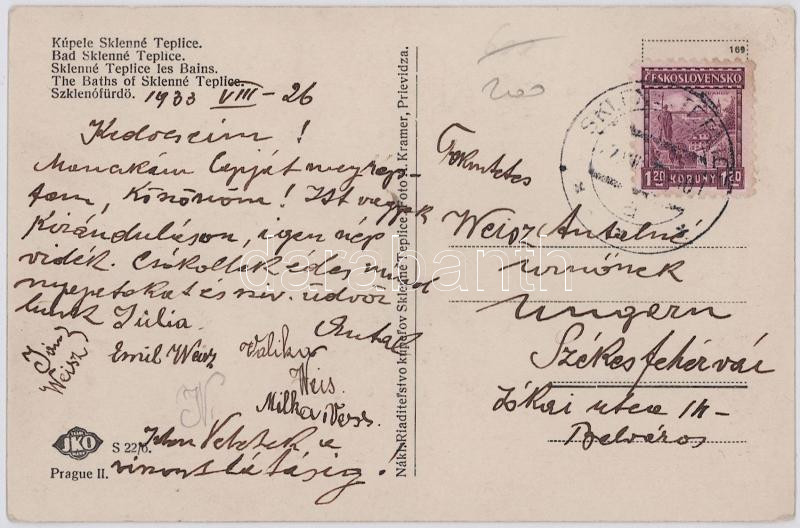 Kúpele Sklenné Teplice.
Bad Sklenné Teplice.
Sklenné Teplice les Bains.
The Baths of Sklenné Teplice.
Szklenófürdö. 1933 VIII – 26
Kedveseim!
lapját megkap-
tam, Köszönöm! Itt vagyok
Kiránduláson, igen szép
vidék. Csókollak édes mind
nyájatokat és szív. üdvöz
lünk Júlia. Antal
Emil Weisz
Weisz
Valika
Weis.
Milka Weisz
Isten Veletek a
viszontlátásig!
JKO
S 22/6.
Prague II.
Nákl. Riaditeľstvo kúpeľov Sklenné Teplice Foto J. Kramer, Prievidza.
169
ČESKOSLOVENSKO
1.20 KORUNY 1.20
Tekintetes
Weisz Antalné
urnőnek
Ungarn
Székesfehérvár
Jókai utca 14–
Belváros
darabanth